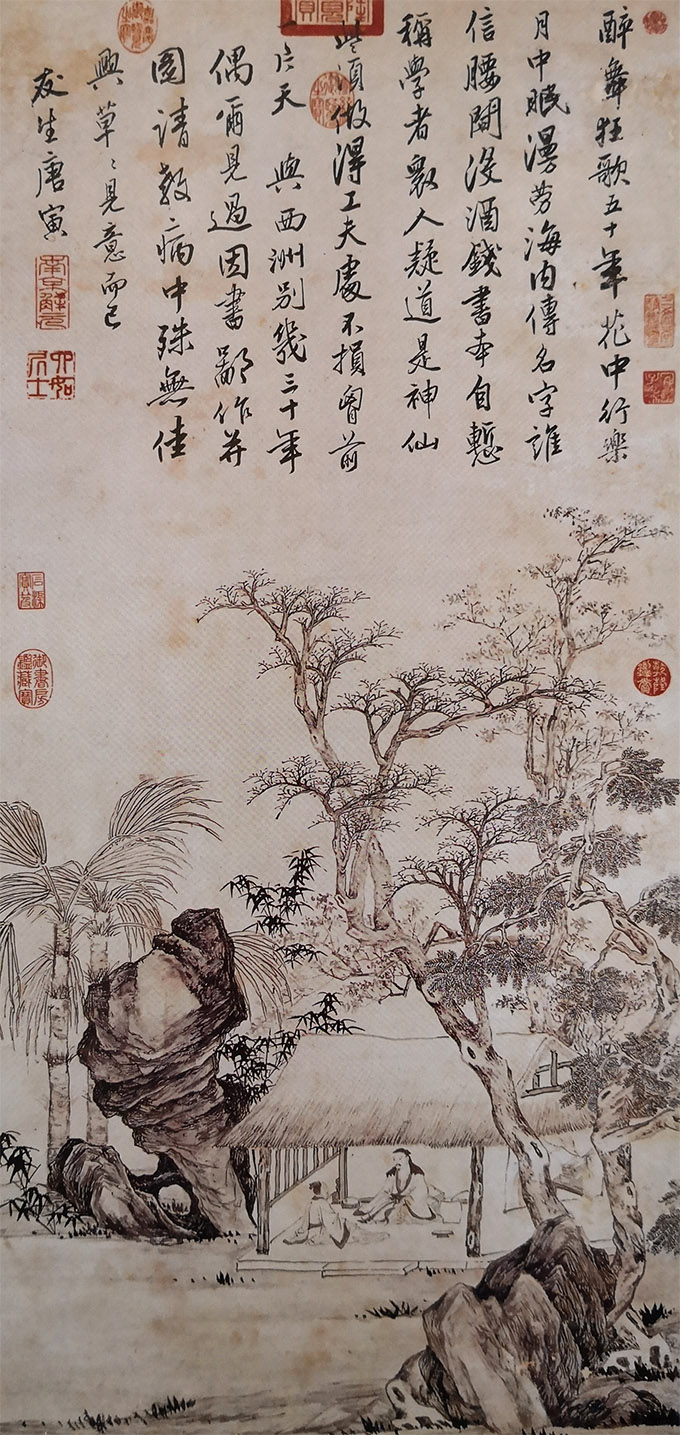 醉舞狂歌五十年花中行樂
月中眠漫勞海内傳名字誰
信腰間沒酒錢書本自慙
稱學者眾人疑道是神仙
些須做得工夫處不損胷前
一片天與西洲別幾三十年
偶爾見過因書鄙作并
圖請教病中殊無佳
興草〻見意而已
友生唐寅
南京解元
六如居士
御書房鑑藏寶